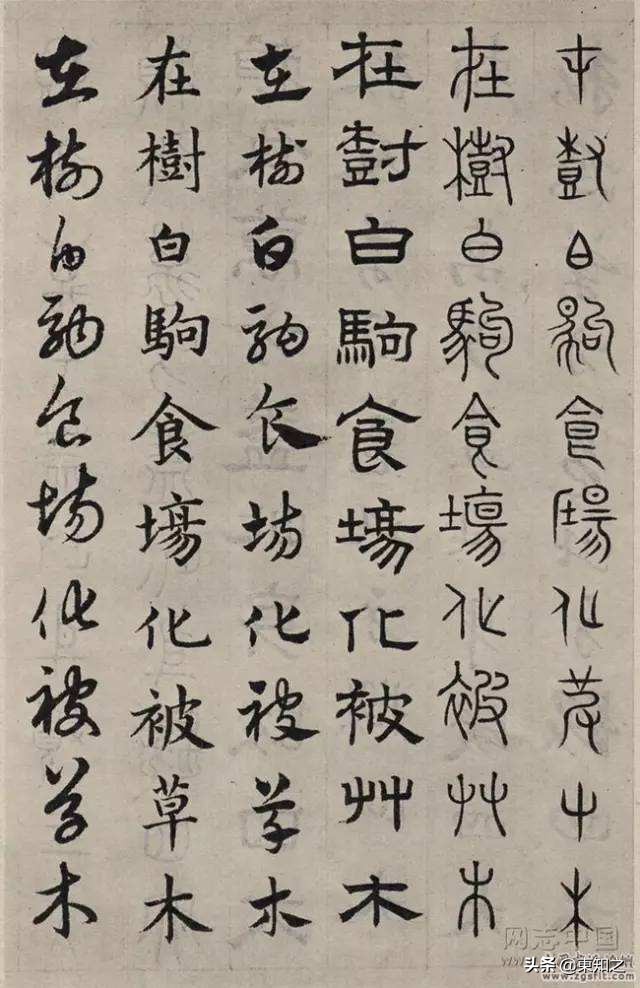 在樹白駒食場化被艸木
在樹白駒食場化被艸木
在尌白駒食場化被艸木
在樹白駒食場化被草木
在樹白駒食場化被草木
在樹白駒食場化被草木
网志中国
头条 @東知之
www.zgsflt.com